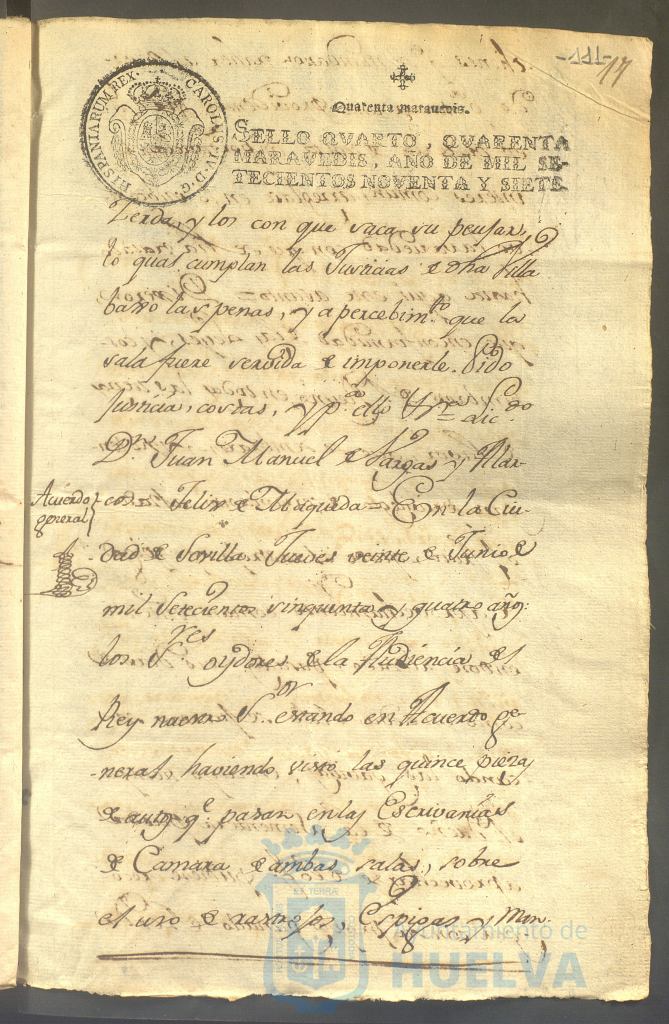 -111-
17
HISPANIARUM REX. CAROLUS. IV. D. G.
Quarenta maravedis.
SELLO QVARTO, QVARENTA
MARAVEDIS, AÑO DE MIL SE-
TECIENTOS NOVENTA Y SIETE.
y los con que saca su
lo qual cumplan las Justicias de dha Villa
baxo las penas, y apercebim.to que la
sala fuere servida de imponerle. Pido
Justicia, costas, y p.a ello &.ra = Lic.do
D.n Juan Manuel de Vargas y Mar-
cos Felix de Maqueda = En la Ciu-
Acuerdo
general
dad de Sevilla Jueves veinte de Junio de
mil setecientos sinquenta y quatro años:
los S.res oydores de la Audiencia del
Rey nuestro S.or estando en Acuerdo ge-
neral haviendo visto las quince piezas
de autos q.e pasan en las Escrivanias
de Camara de ambas salas, sobre
el uso de rastrojos, Espigas y Mon-
Ayuntamiento de
HUELVA